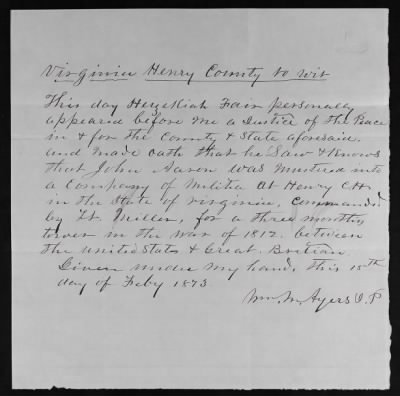 Virginia Henry County to wit
This day Hezekiah Fair personaly
appeared before me a Justice of the Peace
in & for the County & State aforesaid
and made oath that he Saw & knows
that John Aaron was mustered into
a Company of Militia at Henry C.H.
in the State of virginia, Commanded
by Lt. Miller, for a three months
tower in the war of 1812. between
the United States & Great. Britian
Given under my hand, this 15th
day of Feby 1873
Wm. M. Ayers J.P